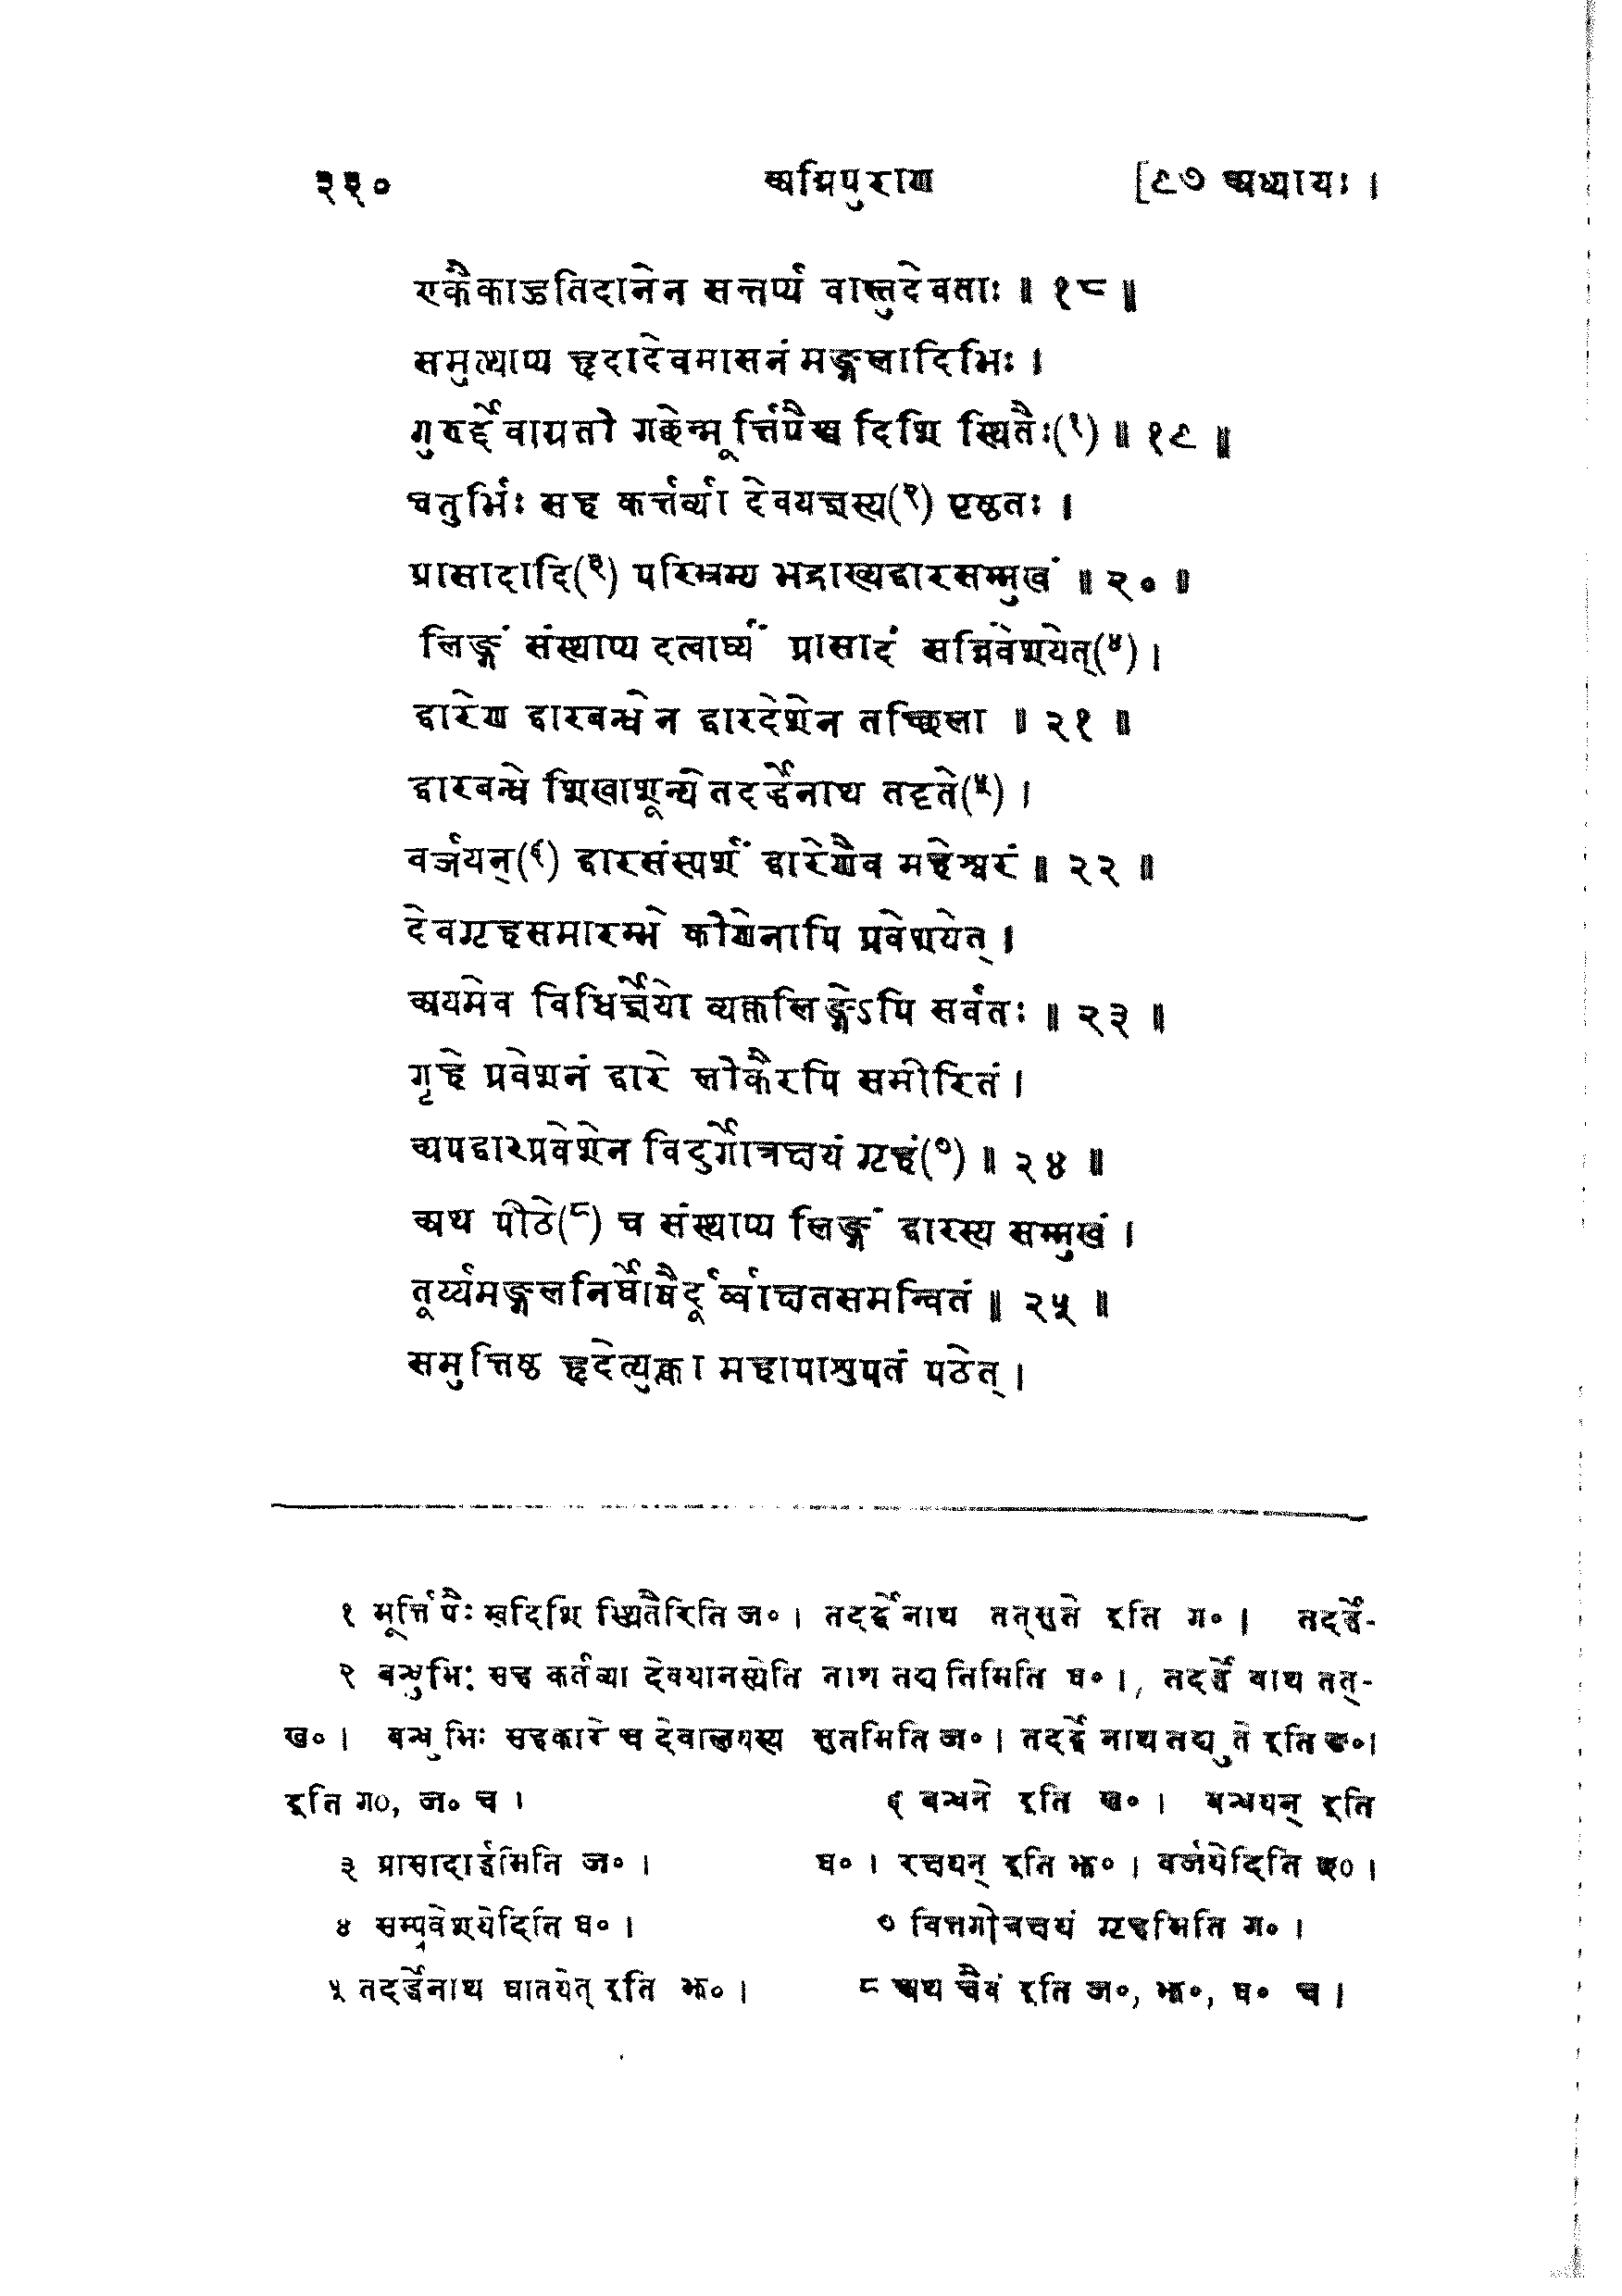 ३३० अग्निपुराणे [९७ अध्यायः ।
एकैकाहुतिदानेन सन्तर्प्य वास्तुदेवताः ॥ १८ ॥
समुत्थाप्य हृदादेवमासनं मङ्गलादिभिः ।
गुरुर्द्देवाग्रतो गच्छेन्मूर्त्तिपैश्च दिशि स्थितैः(१) ॥ १९ ॥
चतुर्भिः सह कर्त्तव्या देवयज्ञस्य(२) पृष्ठतः ।
प्रासादादि(३) परिभ्रम्य भद्राख्यद्वारसम्मुखं ॥ २० ॥
लिङ्गं संस्थाप्य दत्वार्घ्यं प्रासादं सन्निवेशयेत्(४) ।
द्वारेण द्वारबन्धेन द्वारदेशेन तच्छिला ॥ २१ ॥
द्वारबन्धे शिखाशून्ये तदर्द्धेनाथ तदृते(५) ।
वर्जयन्(६) द्वारसंस्पर्शं द्वारेणैव महेश्वरं ॥ २२ ॥
देवगृहसमारम्भे कोणेनापि प्रवेशयेत् ।
अयमेव विधिर्ज्ञेयो व्यक्तलिङ्गेऽपि सर्वतः ॥ २३ ॥
गृहे प्रवेशनं द्वारे लोकैरपि समीरितं ।
अपद्वारप्रवेशेन विदुर्गोत्रक्षयं गृहं(७) ॥ २४ ॥
अथ पीठे(८) च संस्थाप्य लिङ्गं द्वारस्य सम्मुखं ।
तूर्य्यमङ्गलनिर्घोषैर्दूर्व्वाक्षतसमन्वितं ॥ २५ ॥
समुत्तिष्ठ हृदेत्युक्त्वा महापाशुपतं पठेत् ।
१ मूर्त्तिपैः खदिशि स्थितैरिति ज० । तदर्द्धेनाथ तत्सुते इति ग० । तदर्द्धे-
२ बन्धुभिः सह कर्तव्या देवयानस्येति तदर्द्धे तत्-
ख० । बन्धुभिः सहकारे च देवालयस्य सुतमिति ज० । तदर्द्धेनाथ तद्युते इति ङ० ।
इति ग०, ज० च । ६ बन्धने इति ख० । बन्धयन् इति
३ प्रासादार्द्धमिति ज० । घ० । रचयन् इति झ० । वर्जयेदिति
४ सम्प्रवेशयेदिति घ० । ७ वित्तगोत्रक्षयं गृहमिति ग० ।
५ तदर्द्धेनाथ घातयेत् इति झ० । ८ अथ चैवं इति ज०, झ०, घ० च ।